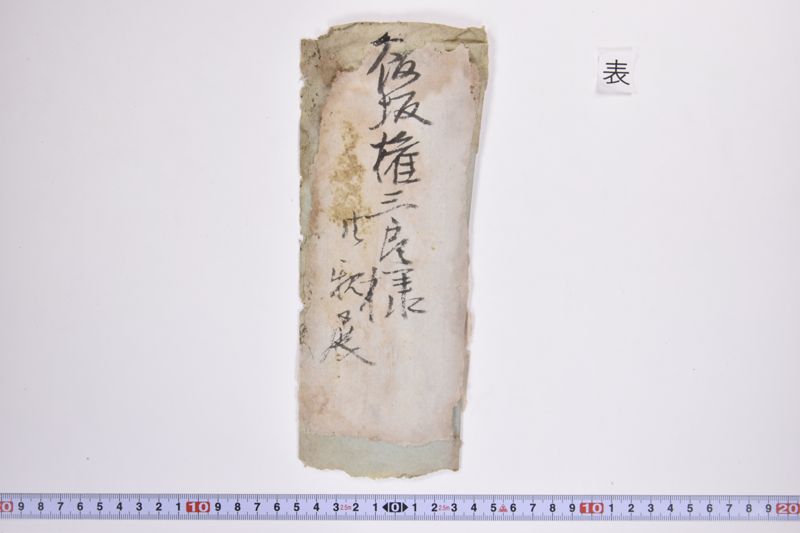 表
飯坂権三良様
親展
20 9 8 7 6 5 4 3 2 1 10 9 8 7 6 5 4 3 2 1 0 1 2 3 4 5 6 7 8 9 10 1 2 3 4 5 6 7 8 9 20